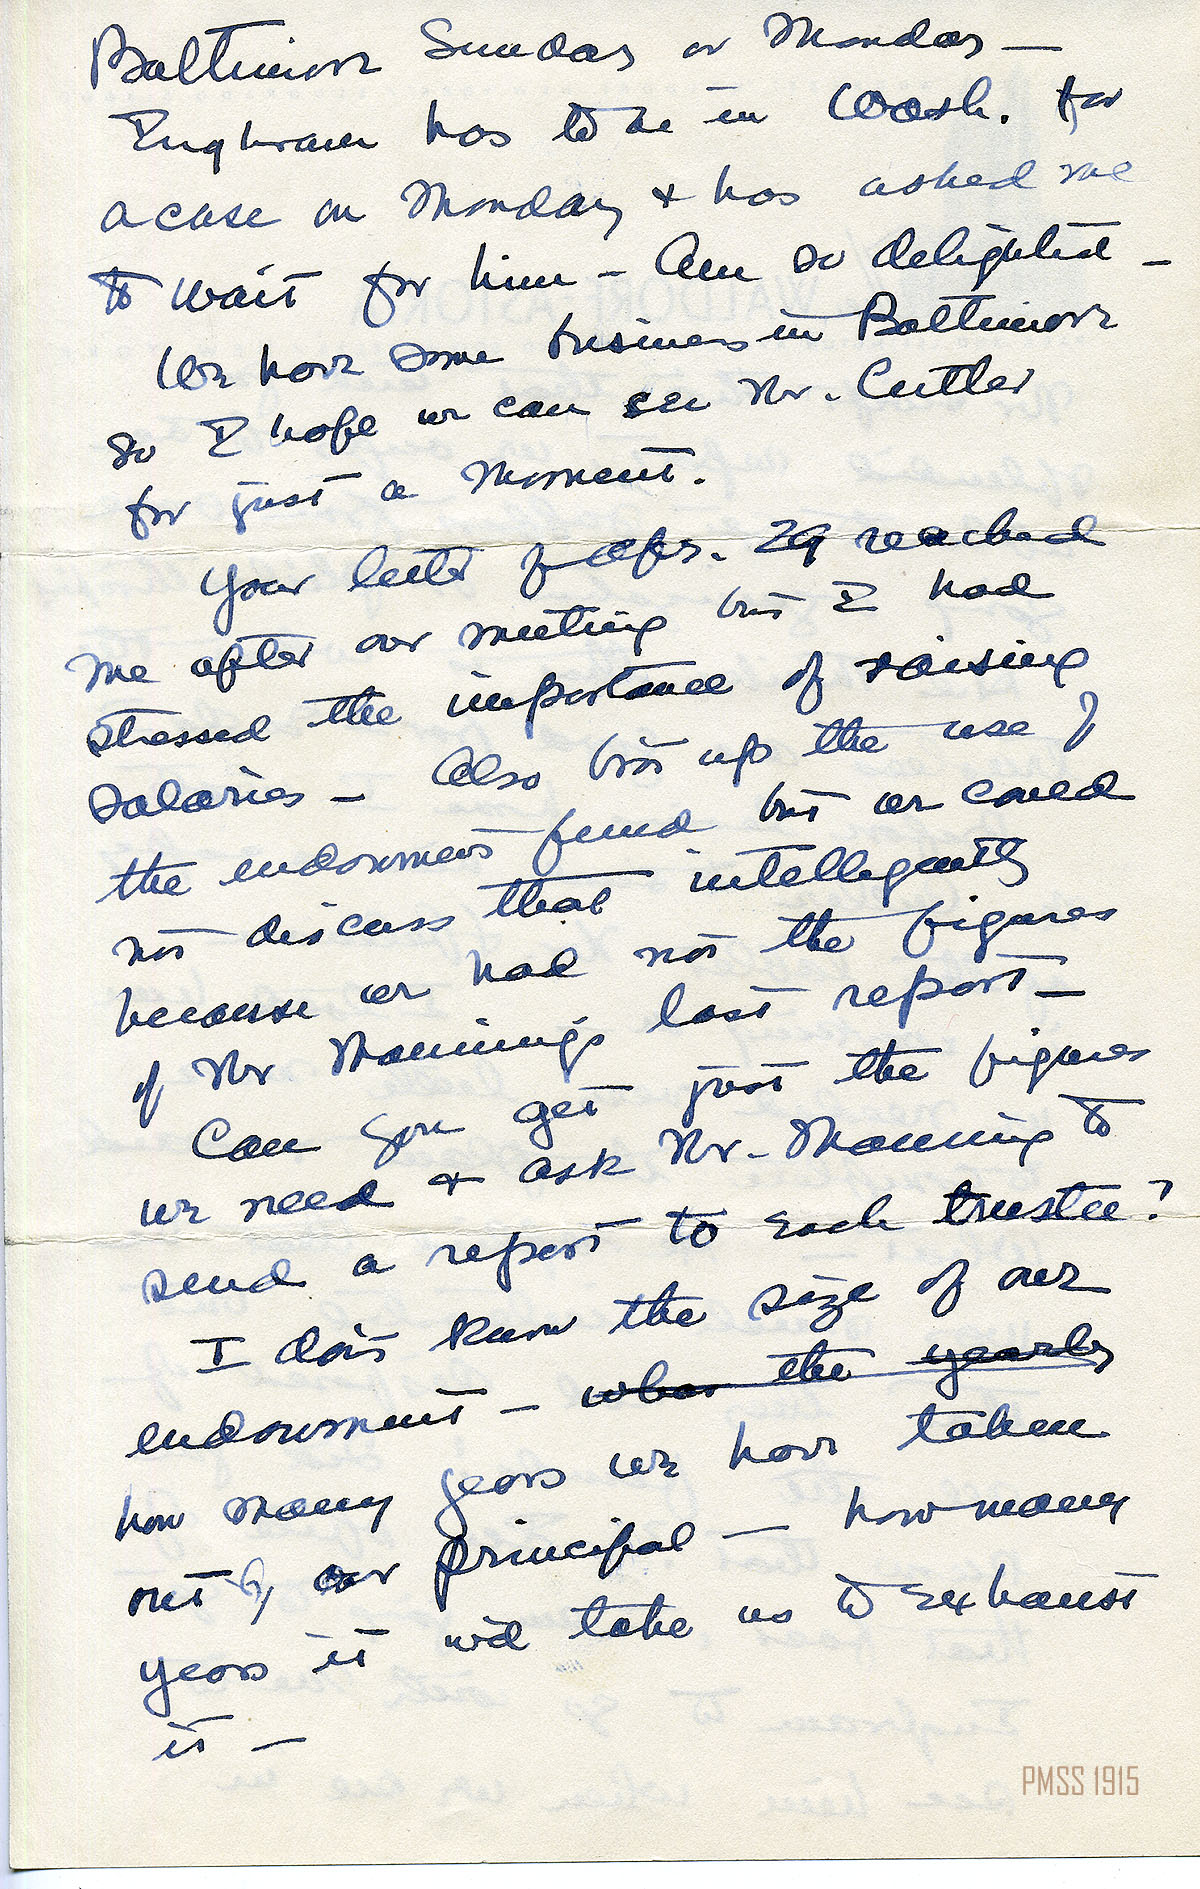 Baltimore Sunday or Monday —
Enghram has to be in Wash. for
a case on Monday & has asked me
to wait for him — Am so delighted —
We have some business in Baltimore
So I hope we can see Mr. Cutler
for just a moment.
Your letter of Apr. 29 reached
me after our meeting but I had
stressed the importance of raising
salaries — Also brot up the use of
the endowment fund but we coued
not discuss that intelligently
because we had not the figures
of Mr Manning's last report —
Can you get just the figures
we need & ask Mr. Manning to
send a report to each trustee?
I don't know the size of our
endowment — what the yearly
how many years we have taken
out of our principal — how many
years it w'd take us to exhaust
it —
PMSS 1915